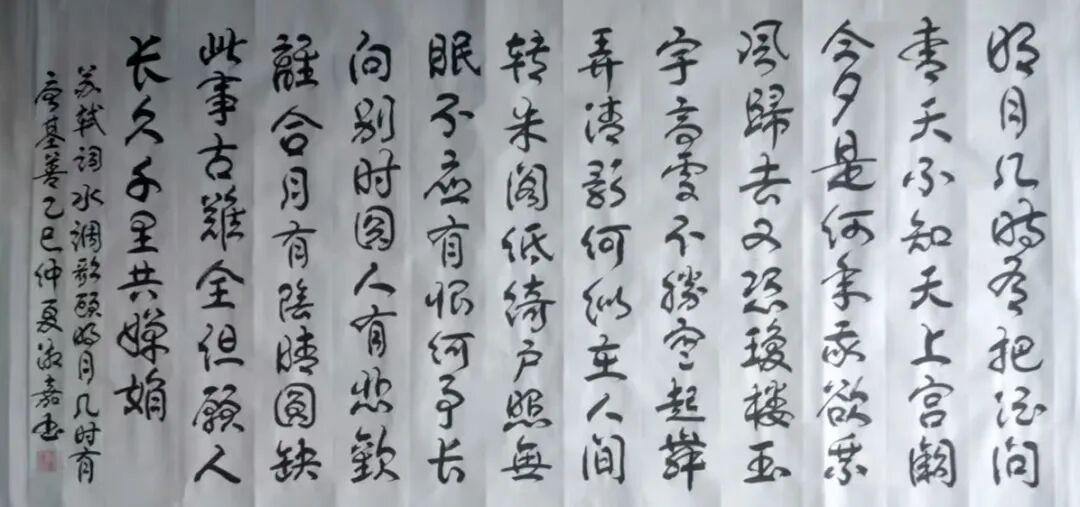 明月几時有把酒问
青天不知天上宫闕
今夕是何年我欲乘
风歸去又恐瓊楼玉
宇高處不勝寒起舞
弄清影何似在人间
转朱阁低绮户照無
眠不应有恨何事长
向别时圆人有悲歡
離合月有陰晴圓缺
此事古難全但願人
长久千里共嬋娟
苏轼词水调歌頭明月几时有
基善乙巳仲夏嘉书